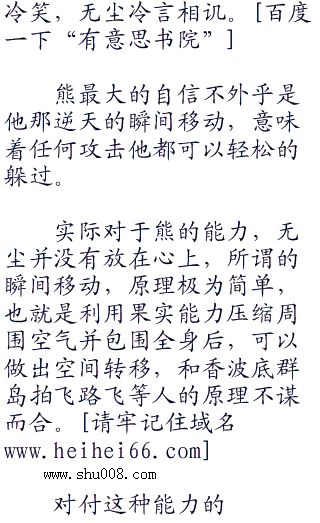 冷笑，无尘冷言相讥。[百度
一下“有意思书院”]
熊最大的自信不外乎是
他那逆天的瞬间移动，意味
着任何攻击他都可以轻松的
躲过。
实际对于熊的能力，无
尘并没有放在心上，所谓的
瞬间移动，原理极为简单，
也就是利用果实能力压缩周
围空气并包围全身后，可以
做出空间转移，和香波底群
岛拍飞路飞等人的原理不谋
而合。[请牢记住域名
www.heihei66.com]
www.shu008.com
对付这种能力的